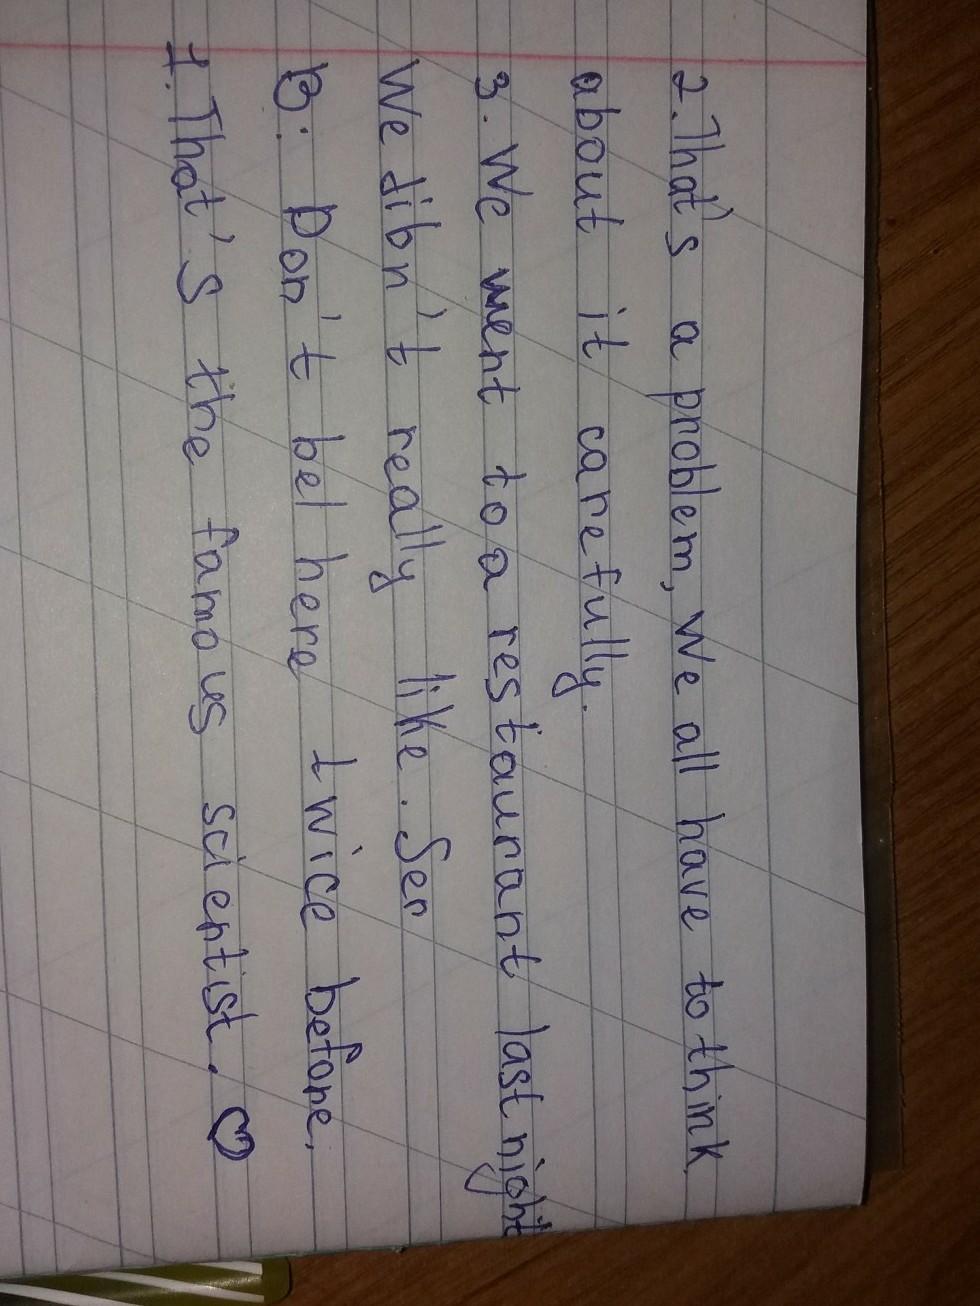 2. That's a problem, we all have to think
about it carefully.
3. We went to a restaurant last night
We dibn't really like. Ser
B: Don't bel here twice before,
1. That's the famous scientist. ♡